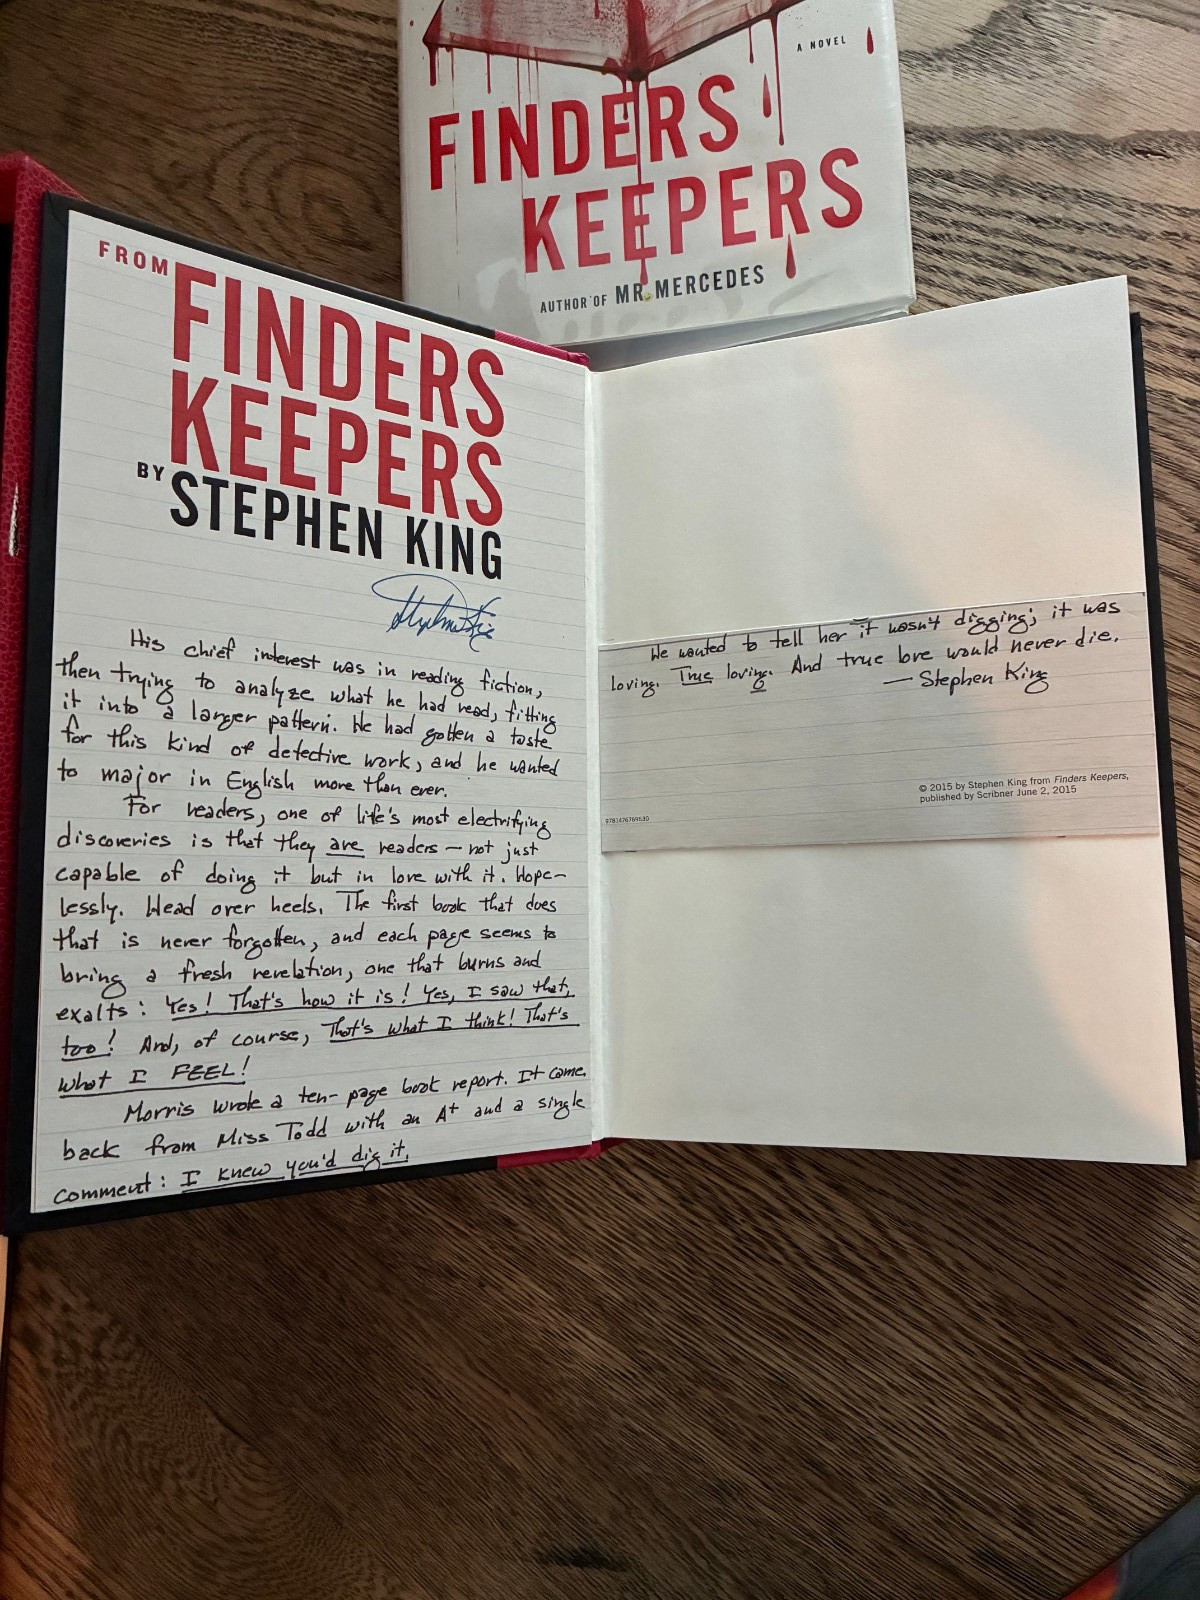 A NOVEL
FINDERS
KEEPERS
AUTHOR OF MR. MERCEDES
FROM
FINDERS
KEEPERS
BY
STEPHEN KING
Stephen King
His chief interest was in reading fiction,
then trying to analyze what he had read, fitting
it into a larger pattern. He had gotten a taste
for this kind of detective work, and he wanted
to major in English more than ever.
For readers, one of life's most electrifying
discoveries is that they are readers — not just
capable of doing it but in love with it. Hope-
lessly. Head over heels. The first book that does
that is never forgotten, and each page seems to
bring a fresh revelation, one that burns and
exalts: Yes! That's how it is! Yes, I saw that,
too! And, of course, That's what I think! That's
what I FEEL!
Morris wrote a ten-page book report. It came
back from Miss Todd with an A+ and a single
comment: I knew you'd dig it.
He wanted to tell her it wasn't digging; it was
loving. True loving. And true love would never die.
— Stephen King
© 2015 by Stephen King from Finders Keepers,
published by Scribner June 2, 2015
9781476769630